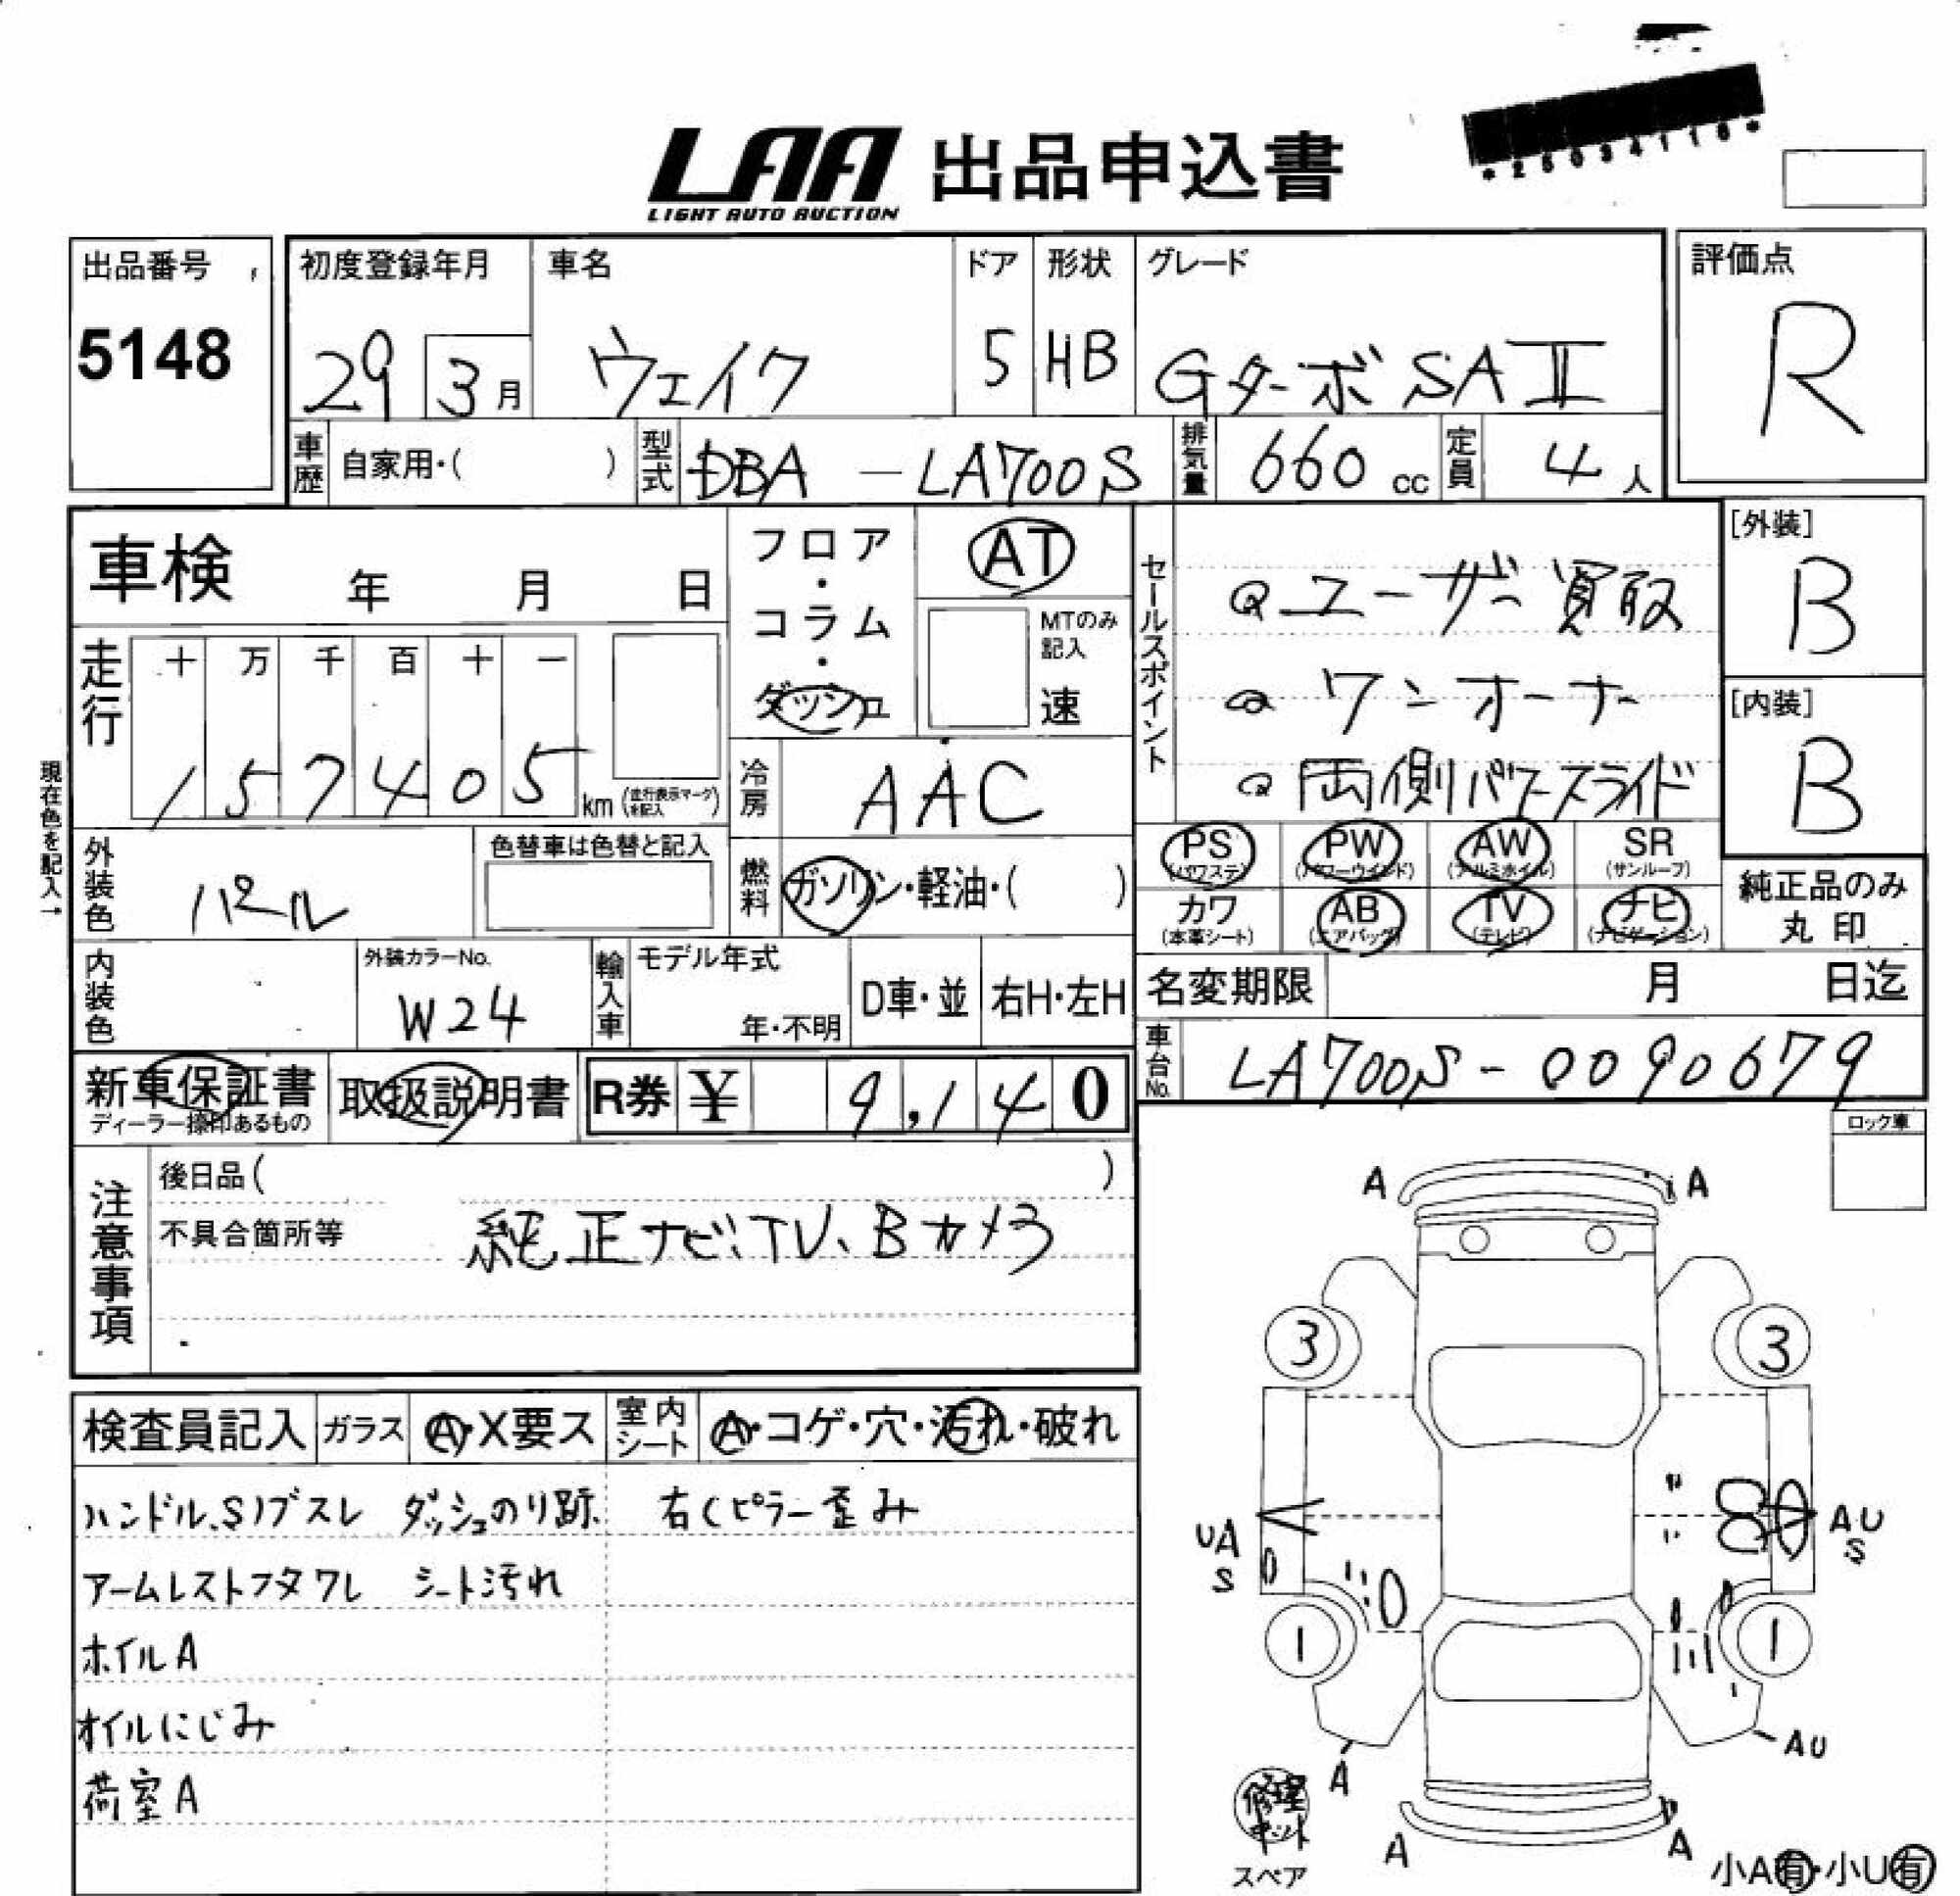 LAA 出品申込書
LIGHT AUTO AUCTION
*25034116*
出品番号
5148
初度登録年月
29 3月
車名
ウェイク
ドア
5
形状
HB
グレード
Gターボ SAⅡ
評価点
R
車歴 自家用・( )
型式 DBA-LA700S
排気量 660 cc
定員 4 人
車検 年 月 日
フロア・コラム・ダッシュ
AT
MTのみ記入
速
セールスポイント
ユーザー買取
ワンオーナー
両側パワースライド
[外装]
B
[内装]
B
走行
十 万 千 百 十 一
1 5 7 4 0 5 km (走行表示マークを記入)
現在色を記入→
冷房 AAC
外装色 パール
色替車は色替と記入
燃料 ガソリン・軽油・( )
PS (パワステ)
PW (パワーウインド)
AW (アルミホイル)
SR (サンルーフ)
カワ (本革シート)
AB (エアバッグ)
TV (テレビ)
ナビ (ナビゲーション)
純正品のみ
丸印
内装色
外装カラーNo.
W24
輸入車
モデル年式
年・不明
D車・並
右H・左H
名変期限 月 日迄
車台No. LA700S-0090679
新車保証書
ディーラー捺印あるもの
取扱説明書
R券 ¥ 9,140
ロック車
注意事項
後日品( )
不具合箇所等 純正ナビ、TV、Bカメラ
検査員記入 ガラス A・X要ス 室内シート A・コゲ・穴・汚れ・破れ
ハンドル、Sノブスレ ダッシュのり跡 右Cピラー歪み
アームレストフタワレ シート汚れ
ホイルA
オイルにじみ
荷室A
A A
3 3
UA
S
AU
S
1 1
A
AU
修理キット
スペア
A A
小A有・小U有